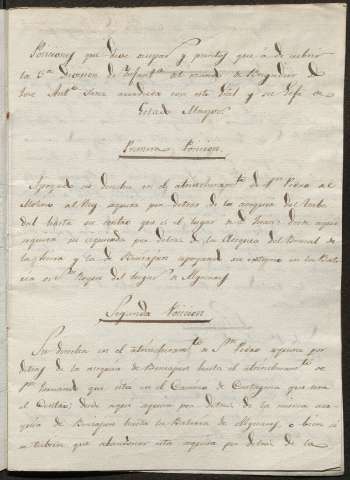 Posiciones que debe ocupar y puntos que á de cubrir
la 5.ª Division de Infant.ª al mando de Brigadier D.
Jose Ant.º Sanz acordada con este Gral y su Gefe de
Estado Mayor.
Primera Posicion
Apoyada su derecha en el atrincheram.to de S.n Pedro al
Molino del Rey seguira por detras de la acequia del
hasta su centro que es el lugar de desde aqui
seguira su izquierda por detras de la Acequia del Brazal de
la y la de Beniajan apoyando su estremo en la Bate
ria de S.n Roque del lugar de Algezares
Segunda Posicion
Su derecha en el atrincheram.to de S.n Pedro seguira por
detras de la acequia de Beniajan hasta el atrincheram.to de
S.n Fernando que esta en el Camino de Cartagena que sera
el Centro; desde aqui seguira por detras de la misma ace
quia de Beniajan hasta la Bateria de Algezares, o bien si
se tubiera que abandonar esta seguira por detras de la